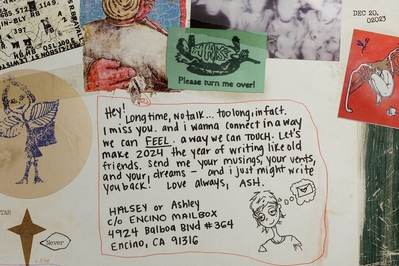 DEC 20,
02023
THANKS
Please turn me over!
Hey!
Long time, no talk... too long, in fact.
I miss you. and i wanna connect in a way
we can FEEL. a way we can TOUCH. Let's
make 2024 the year of writing like old
friends. Send me your musings, your vents,
and your dreams — and i just might write
you back! Love always, ASH.
HALSEY or Ashley
c/o ENCINO MAILBOX
4924 Balboa Blvd #364
Encino, CA 91316
TAR
Never